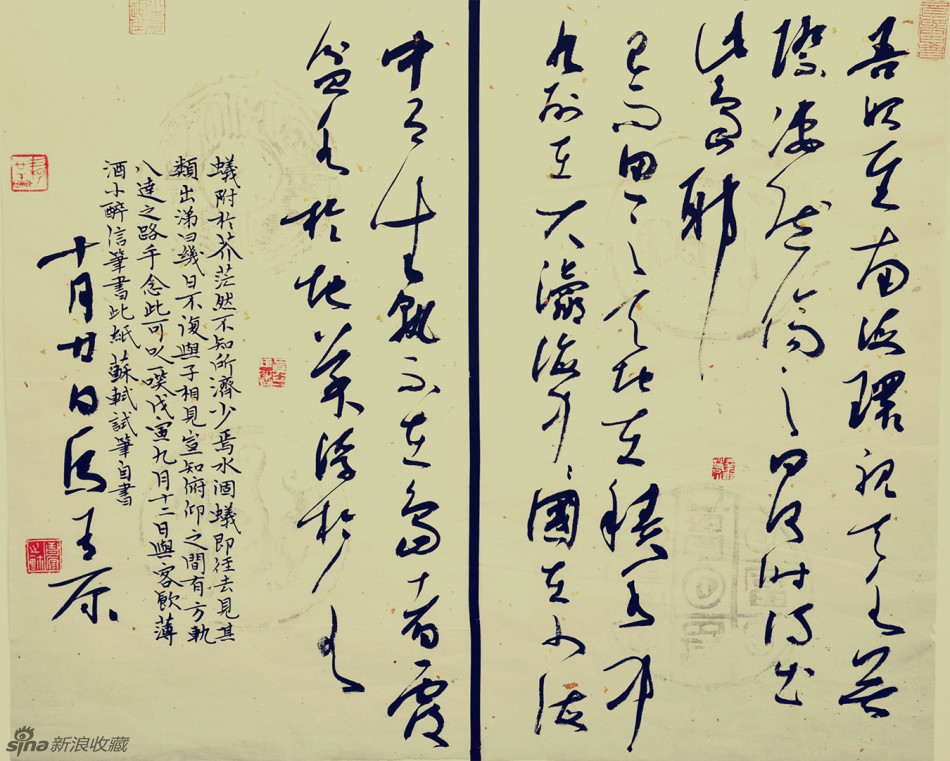 吾始至南海環視天水無
際凄然傷之曰何時得出
此島耶
已而思之天地在積水中
九州在大瀛海中中國在少海
中有生孰不在島者覆
盆水於地芥浮於水
蟻附於芥茫然不知所濟少焉水涸蟻即徑去見其
類出涕曰幾日不復與子相見豈知俯仰之間有方軌
八達之路乎念此可以一噗戊寅九月十二日與客飲薄
酒小醉信筆書此紙蘇軾試筆自書
十月廿日
sina新浪收藏